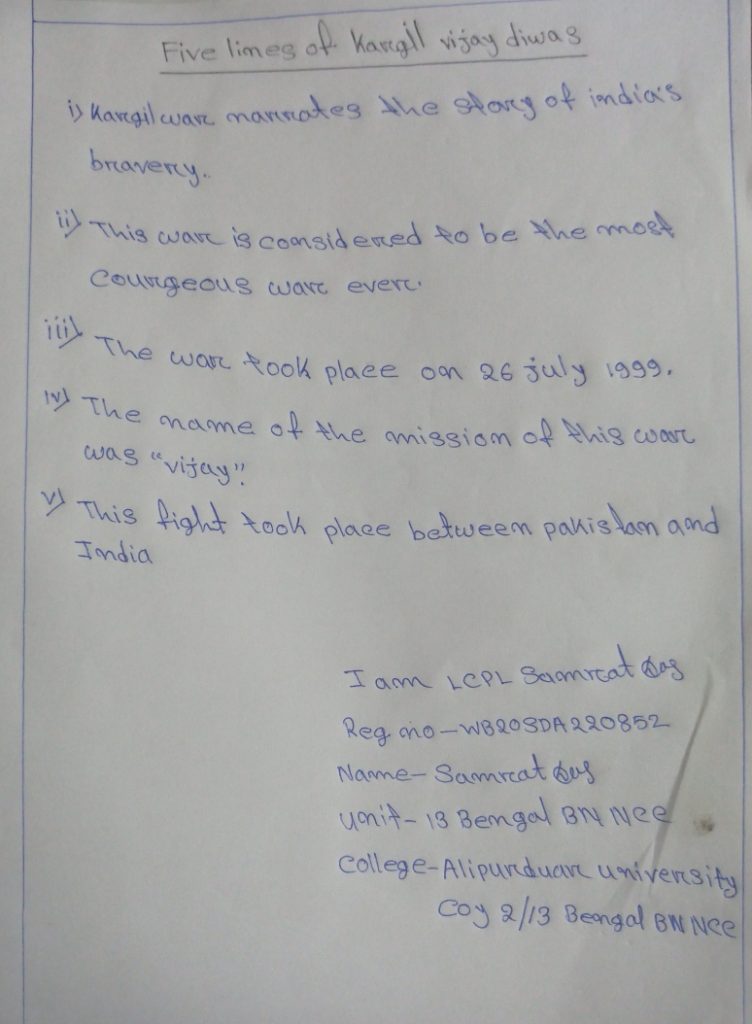 Five lines of Kargil vijay diwas
i) Kargil war narrates the story of india's
bravery.
ii) This war is considered to be the most
Courgeous war ever.
iii) The war took place on 26 july 1999.
iv) The name of the mission of this war
was "vijay".
v) This fight took place between pakistan and
India
I am LCPL Samrat Das
Reg. no - WB20SDA220852
Name - Samrat Das
unit - 13 Bengal BN NCC
College - Alipurduar university
Coy 2/13 Bengal BN NCC